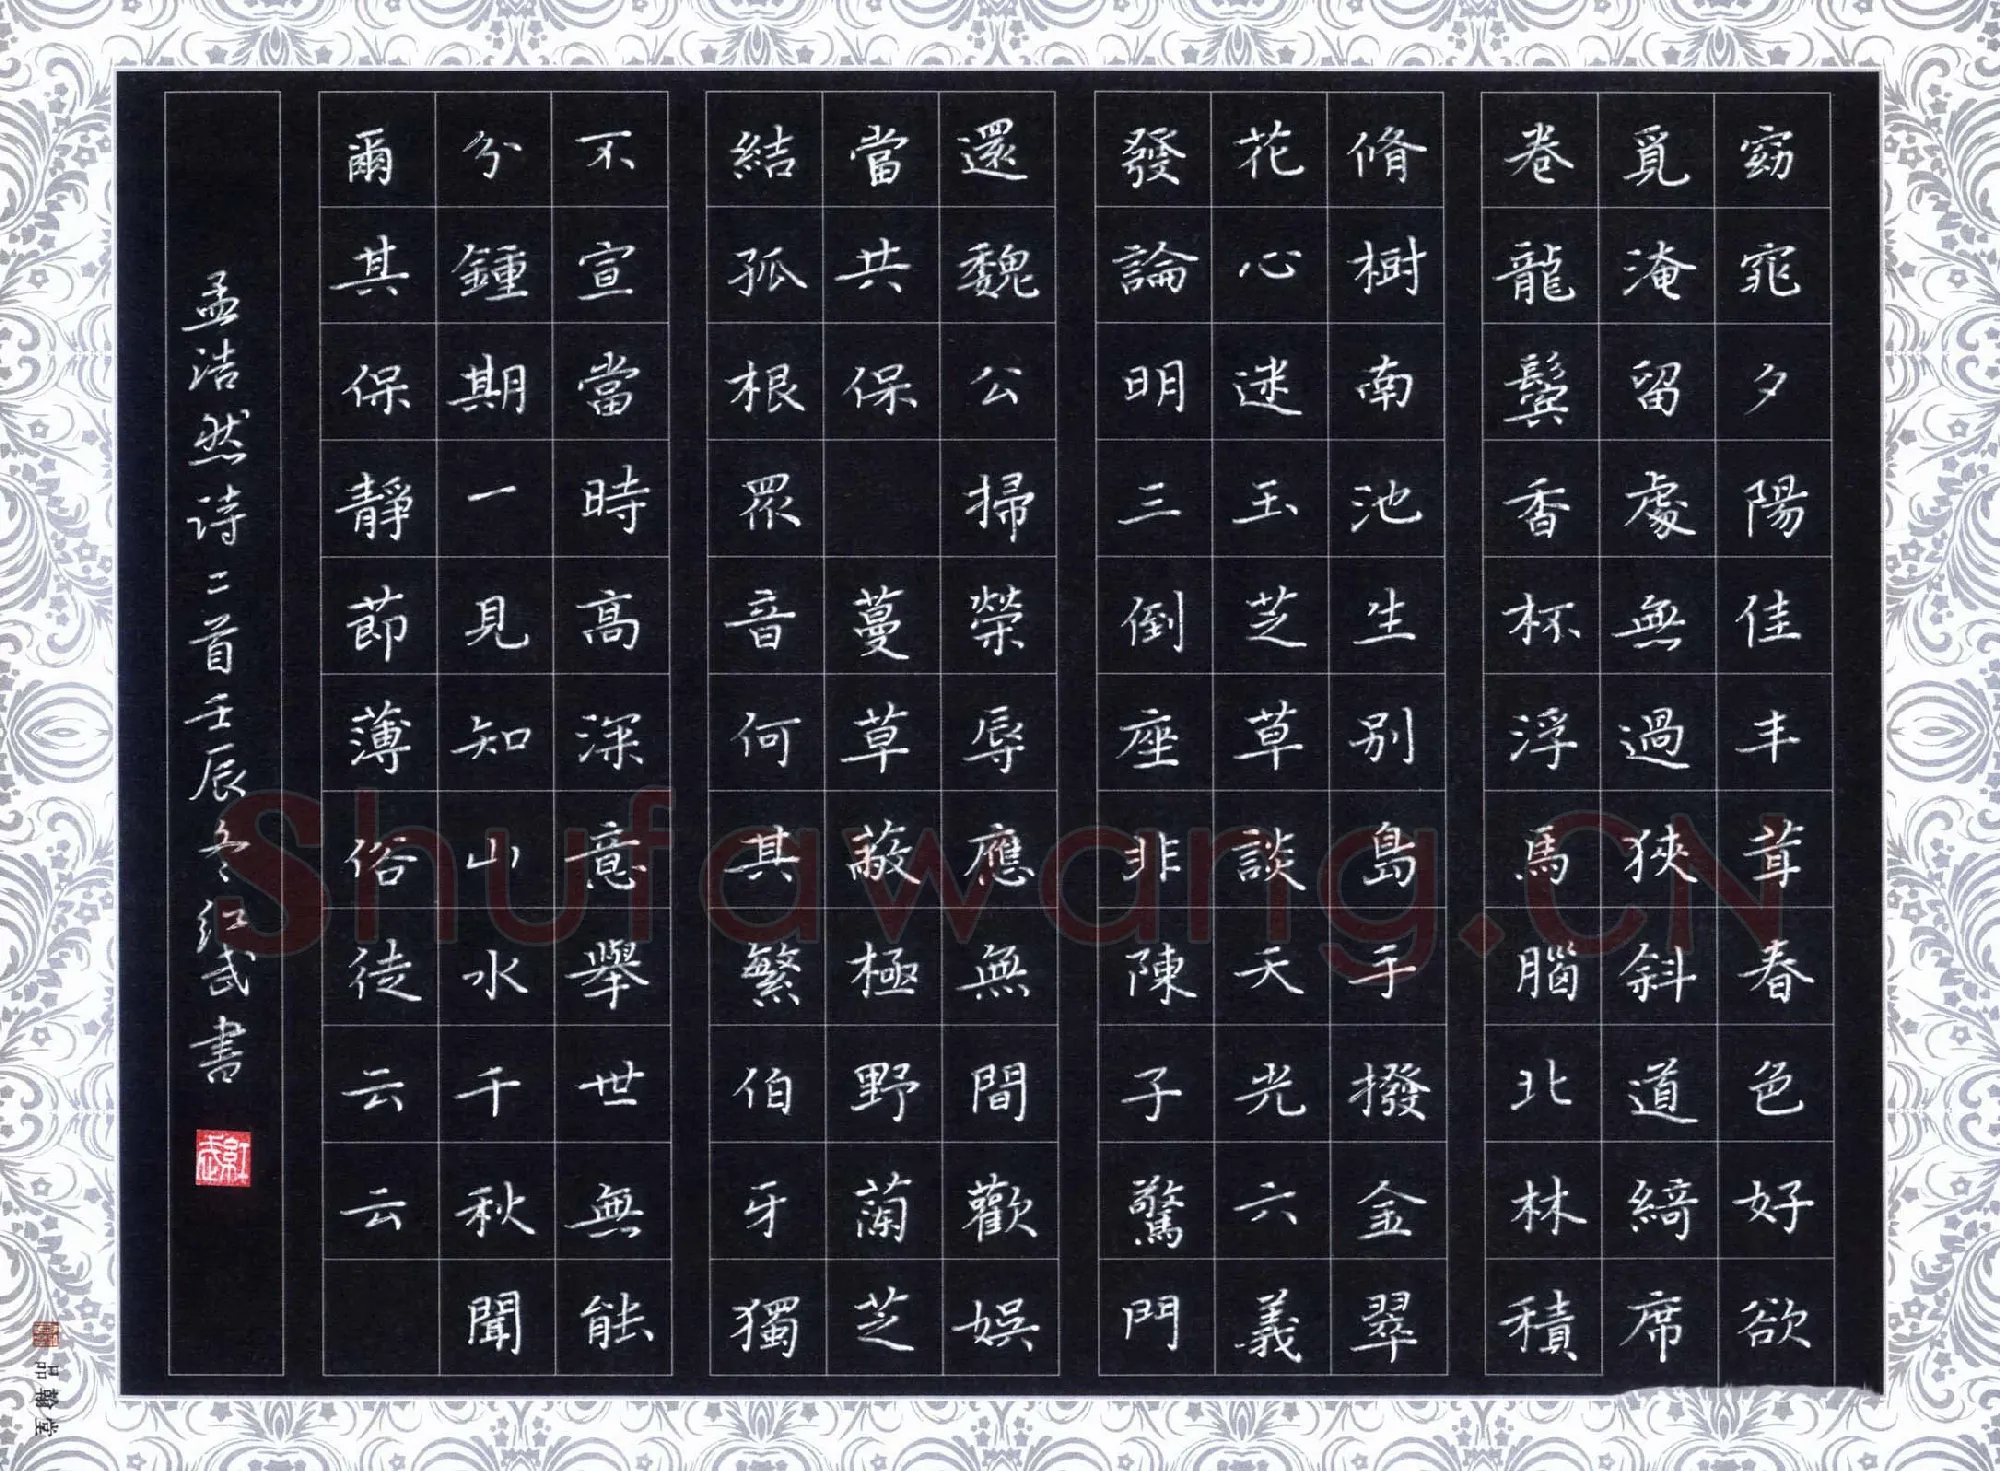 窈窕夕陽佳丰茸春色好欲
覓淹留處無過狹斜道綺席
卷龍鬚香杯浮馬腦北林積
脩樹南池生别島手撥金翠
花心迷玉芝草談天光六義
發論明三倒座非陳子驚門
還魏公掃榮辱應無間歡娛
當共保 蔓草蔽極野蘭芝
結孤根眾音何其繁伯牙獨
不宣當時高深意舉世無能
分鍾期一見知山水千秋聞
爾其保靜節薄俗徒云云
孟浩然诗二首壬辰冬红武書
紅武
品翰堂
Shufawang.CN